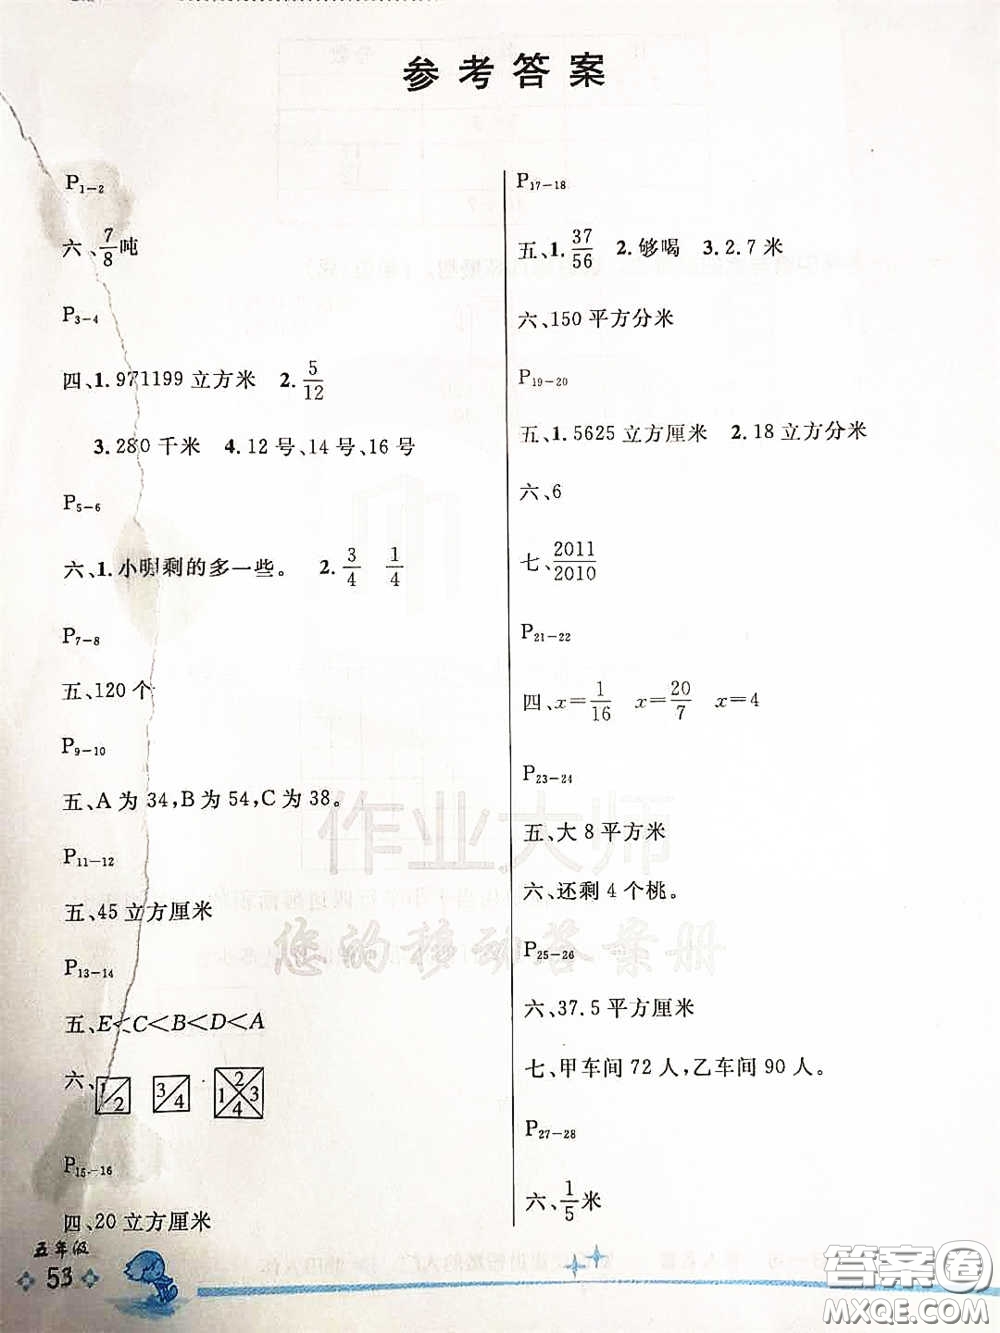 参考答案
P1-2
六、7/8吨
P3-4
四、1.971199立方米 2.5/12
3.280千米 4.12号、14号、16号
P5-6
六、1.小明剩的多一些。 2.3/4 1/4
P7-8
五、120个
P9-10
五、A为34,B为54,C为38。
P11-12
五、45立方厘米
P13-14
五、E<C<B<D<A
六、
1 2
3 4
1 2 3 4
P15-16
四、20立方厘米
五年级
53
P17-18
五、1.37/56 2.够喝 3.2.7米
六、150平方分米
P19-20
五、1.5625立方厘米 2.18立方分米
六、6
七、2011/2010
P21-22
四、x=1/16 x=20/7 x=4
P23-24
五、大8平方米
六、还剩4个桃。
P25-26
六、37.5平方厘米
七、甲车间72人,乙车间90人。
P27-28
六、1/5米
作业大师
您的移动答案册
答案圈
MXQE.COM